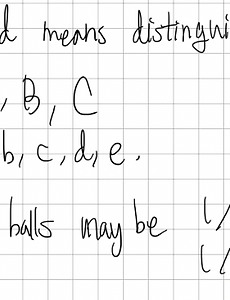 d means distingui
, B, C
b, c, d, e.
balls may be